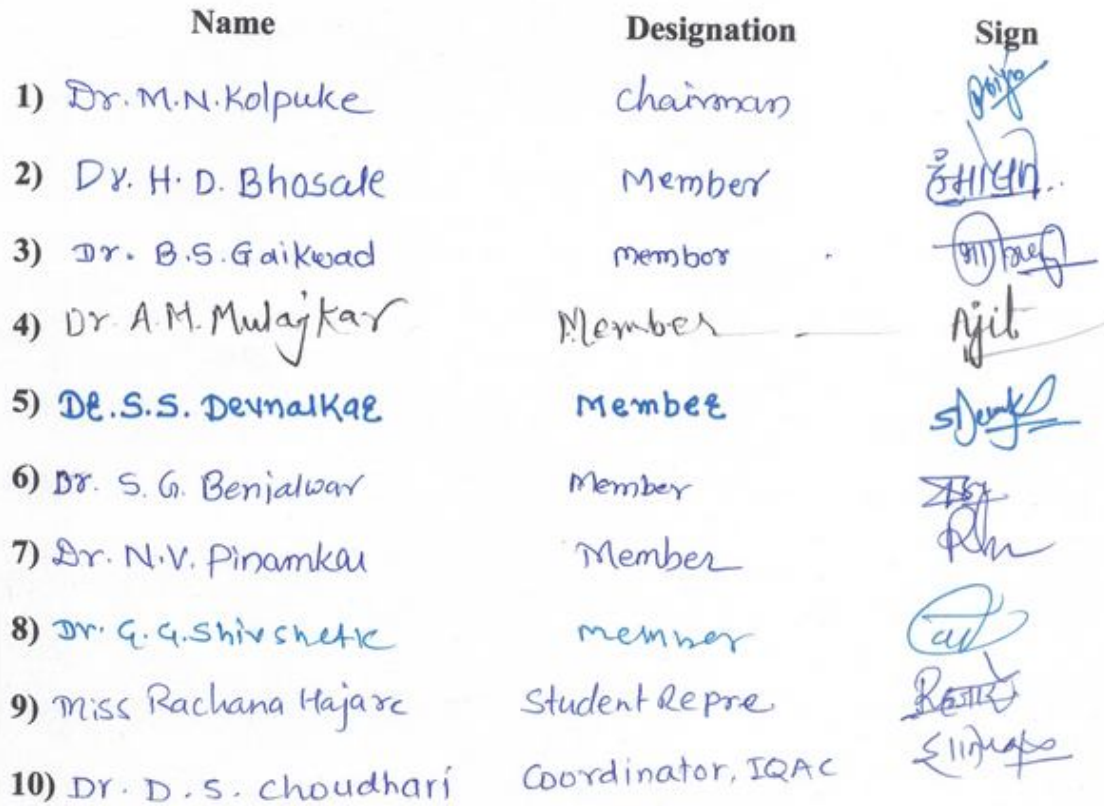 Name Designation Sign
1) Dr. M. N. Kolpuke Chairman
2) Dr. H. D. Bhosale Member
3) Dr. B. S. Gaikwad membor
4) Dr. A. M. Mulajkar Member Ajit
5) Dr. S. S. Devnalkar Member
6) Dr. S. G. Benjalwar Member
7) Dr. N. V. Pinamkar Member
8) Dr. G. G. Shivshette member
9) Miss Rachana Hajare Student Repre
10) Dr. D. S. Choudhari Coordinator, IQAC